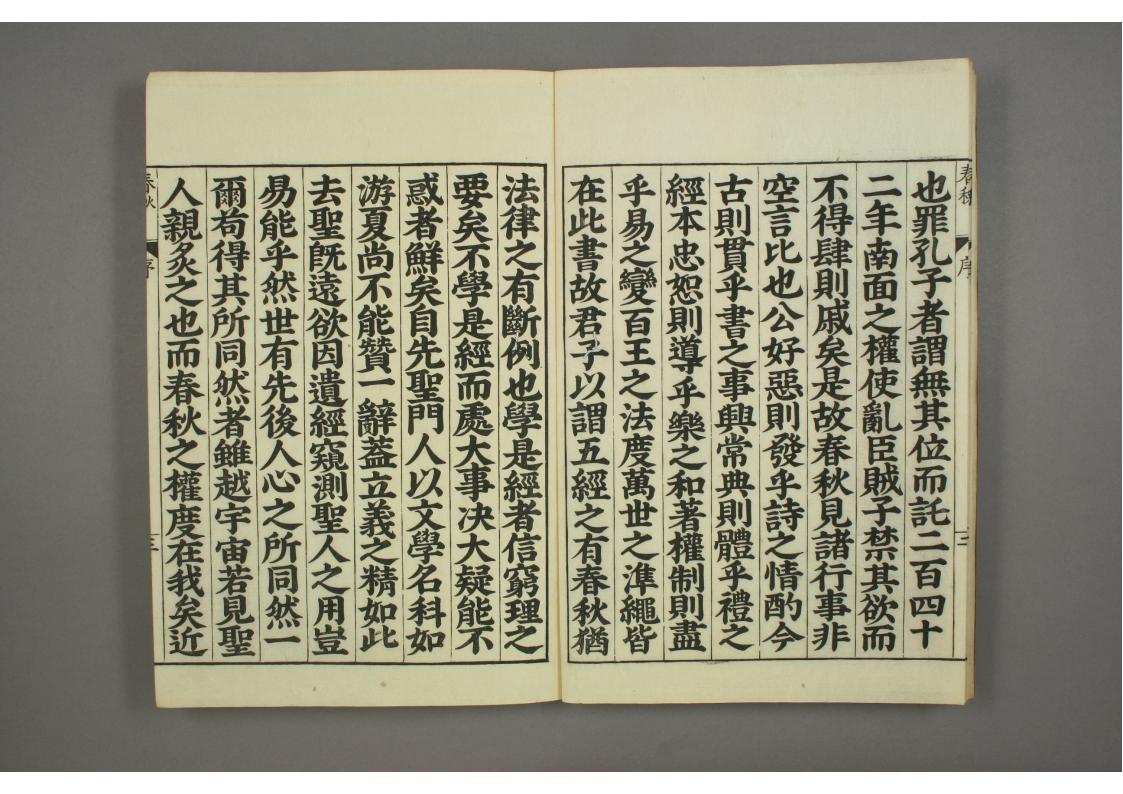 春秋 序 三
也罪孔子者謂無其位而託二百四十
二年南面之權使亂臣賊子禁其欲而
不得肆則戚矣是故春秋見諸行事非
空言比也公好惡則發乎詩之情酌今
古則貫乎書之事興常典則體乎禮之
經本忠恕則導乎樂之和著權制則盡
乎易之變百王之法度萬世之準繩皆
在此書故君子以謂五經之有春秋猶
法律之有斷例也學是經者信窮理之
要矣不學是經而處大事决大疑能不
惑者鮮矣自先聖門人以文學名科如
游夏尚不能贊一辭蓋立義之精如此
去聖旣遠欲因遺經窺測聖人之用豈
易能乎然世有先後人心之所同然一
爾苟得其所同然者雖越宇宙若見聖
人親炙之也而春秋之權度在我矣近
春秋 序 三